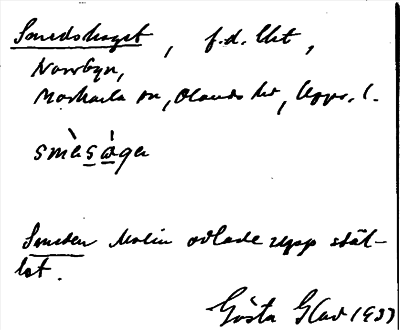 Smedshaget, f.d. lht,
Norrbyn,
Morkarla sn, Olands hd, Upps. l.
smèsàga
Smeden Molin odlade upp stäl-
let.
Gösta Glad 1937